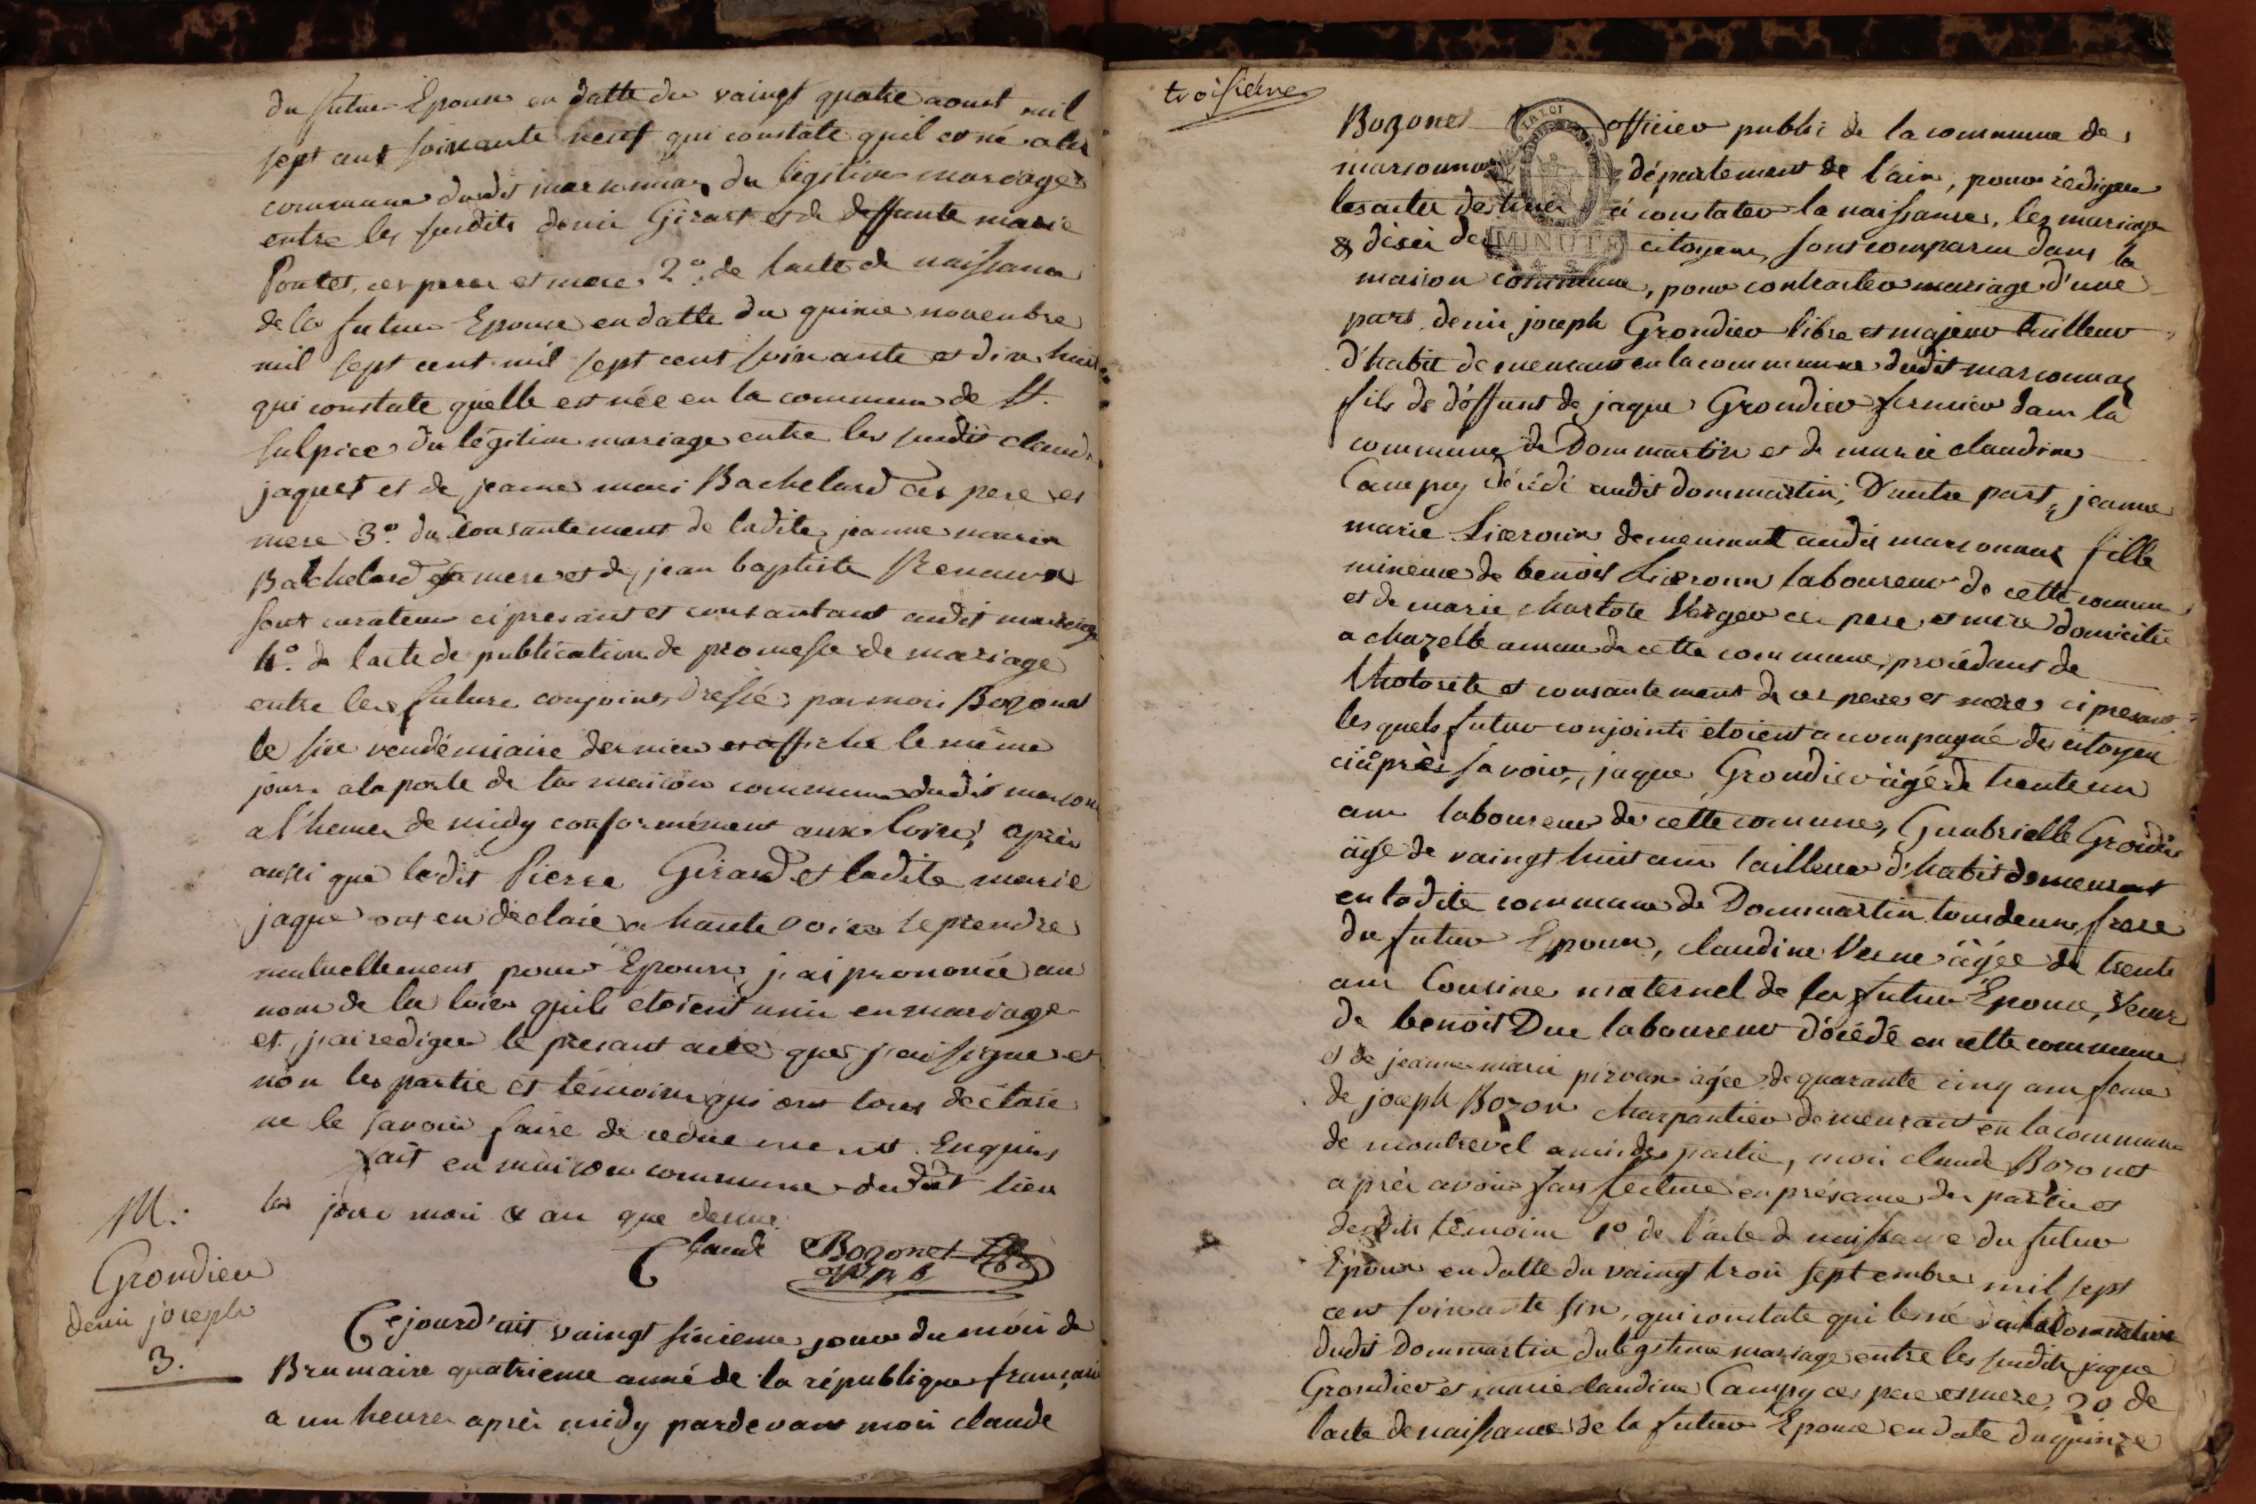 du futur Epoux en datte du vaingt quatre aoust mil
sept cent soixante neuf qui constate quil es né a la
commune dudit marsonnas du légitime mariage
entre les susdits denis Girart et de deffunte marie
Pontet, ces peres et mere. 2º. de lacte de naissance
de la futur Epouse en datte du quinze novembre
mil sept cent mil sept cent soixante et dix huit
qui constate quelle est née en la commune de St.
sulpice du légitime mariage entre les susdit claude
jaquet et de jeanne marie Bachelard ces pere et
mere 3º. du consantement de ladite jeanne marie
Bachelard sa mere et de jean baptiste Renaud
sont curateur ci presant et consantant audit mariage
4º. de lacte de publication de promesse de mariage
entre les future conjoints dressée par moi Bozonet
le six vendémiaire dernier et affiché le même
jour a la porte de la maison commune dudit marsonnas
a l'heure de midy conformément aux loix; après
aussi que ledit Pierre Girard et ladite marie
jaquet ont eu déclaré a haute voix se prendre
mutuellement pour Epoux, j'ai prononcée au
nom de la loix quils étoient unis en mariage
et j'ai rediger le présant acte que j'ai signé et
non les partie et témoins qui ont tous déclaré
ne le savoir faire de ce duement Enquis
fait en maison commune dudit lieu
les jour mois & an que dessus.
Claude Bozonet
M.
Grondier
denis joseph
3.
Cejourd'uit vaingt sixieme jour du mois de
Brumaire quatrieme année de la république française
a un heure après midy pardevant moi claude
troisieme
Bozonet officier public de la commune de
marsonnas département de l'ain, pour rédiger
les actes destinés à constater la naissances, les mariage
& décès des citoyens, sont comparu dans la
MINUTE
maison commune, pour contracter mariage d'une
part denis joseph Grondier libre et majeur tailleur
d'habit demeurant en la commune dudit marsonnas
fils de déffunt de jaque Grondier fermier dans la
commune de Dommartin et de marie claudine
Campy décédé audit dommartin; D'autre part, jeanne
marie demeurant audit marsonnas fille
mineure de benoit laboureur de cette commune
et de marie Verger ces pere et mere domicilié
a chazelle ameau de cette commune, procédant de
l'hotorité et consantement de ces peres et meres ci presant
les quels futur conjoints étoient accompagné des citoyen
ci après savoir, jaque Grondier âgé de trente un
ans laboureur de cette commune, Guabrielle Grondier
âgé de vaingt huit ans tailleur d'habit demeurant
en ladite commune de Dommartin tous deux frere
du futur Epoux, claudine Verne âgée de trente
ans Cousine maternel de la futur Epouse, Veuve
de benoit Duc laboureur décédé en cette commune
et de jeanne marie âgée de quarante cinq ans feme
de joseph Bozon charpantier demeurant en la commune
de montrevel amis des partie, moi claude Bozonet
après avoir fait lecture en présance des partie et
desdits témoins 1º de l'acte de naissance du futur
Epoux en datte du vaingt trois septembre mil sept
cent soixante six, qui constate qui les né
dudit Dommartin du légitime mariage entre les susdits jaque
Grondier et marie claudine Campy ces pere et mere, 2º de
lacte de naissance de la futur Epouse en date du quinze